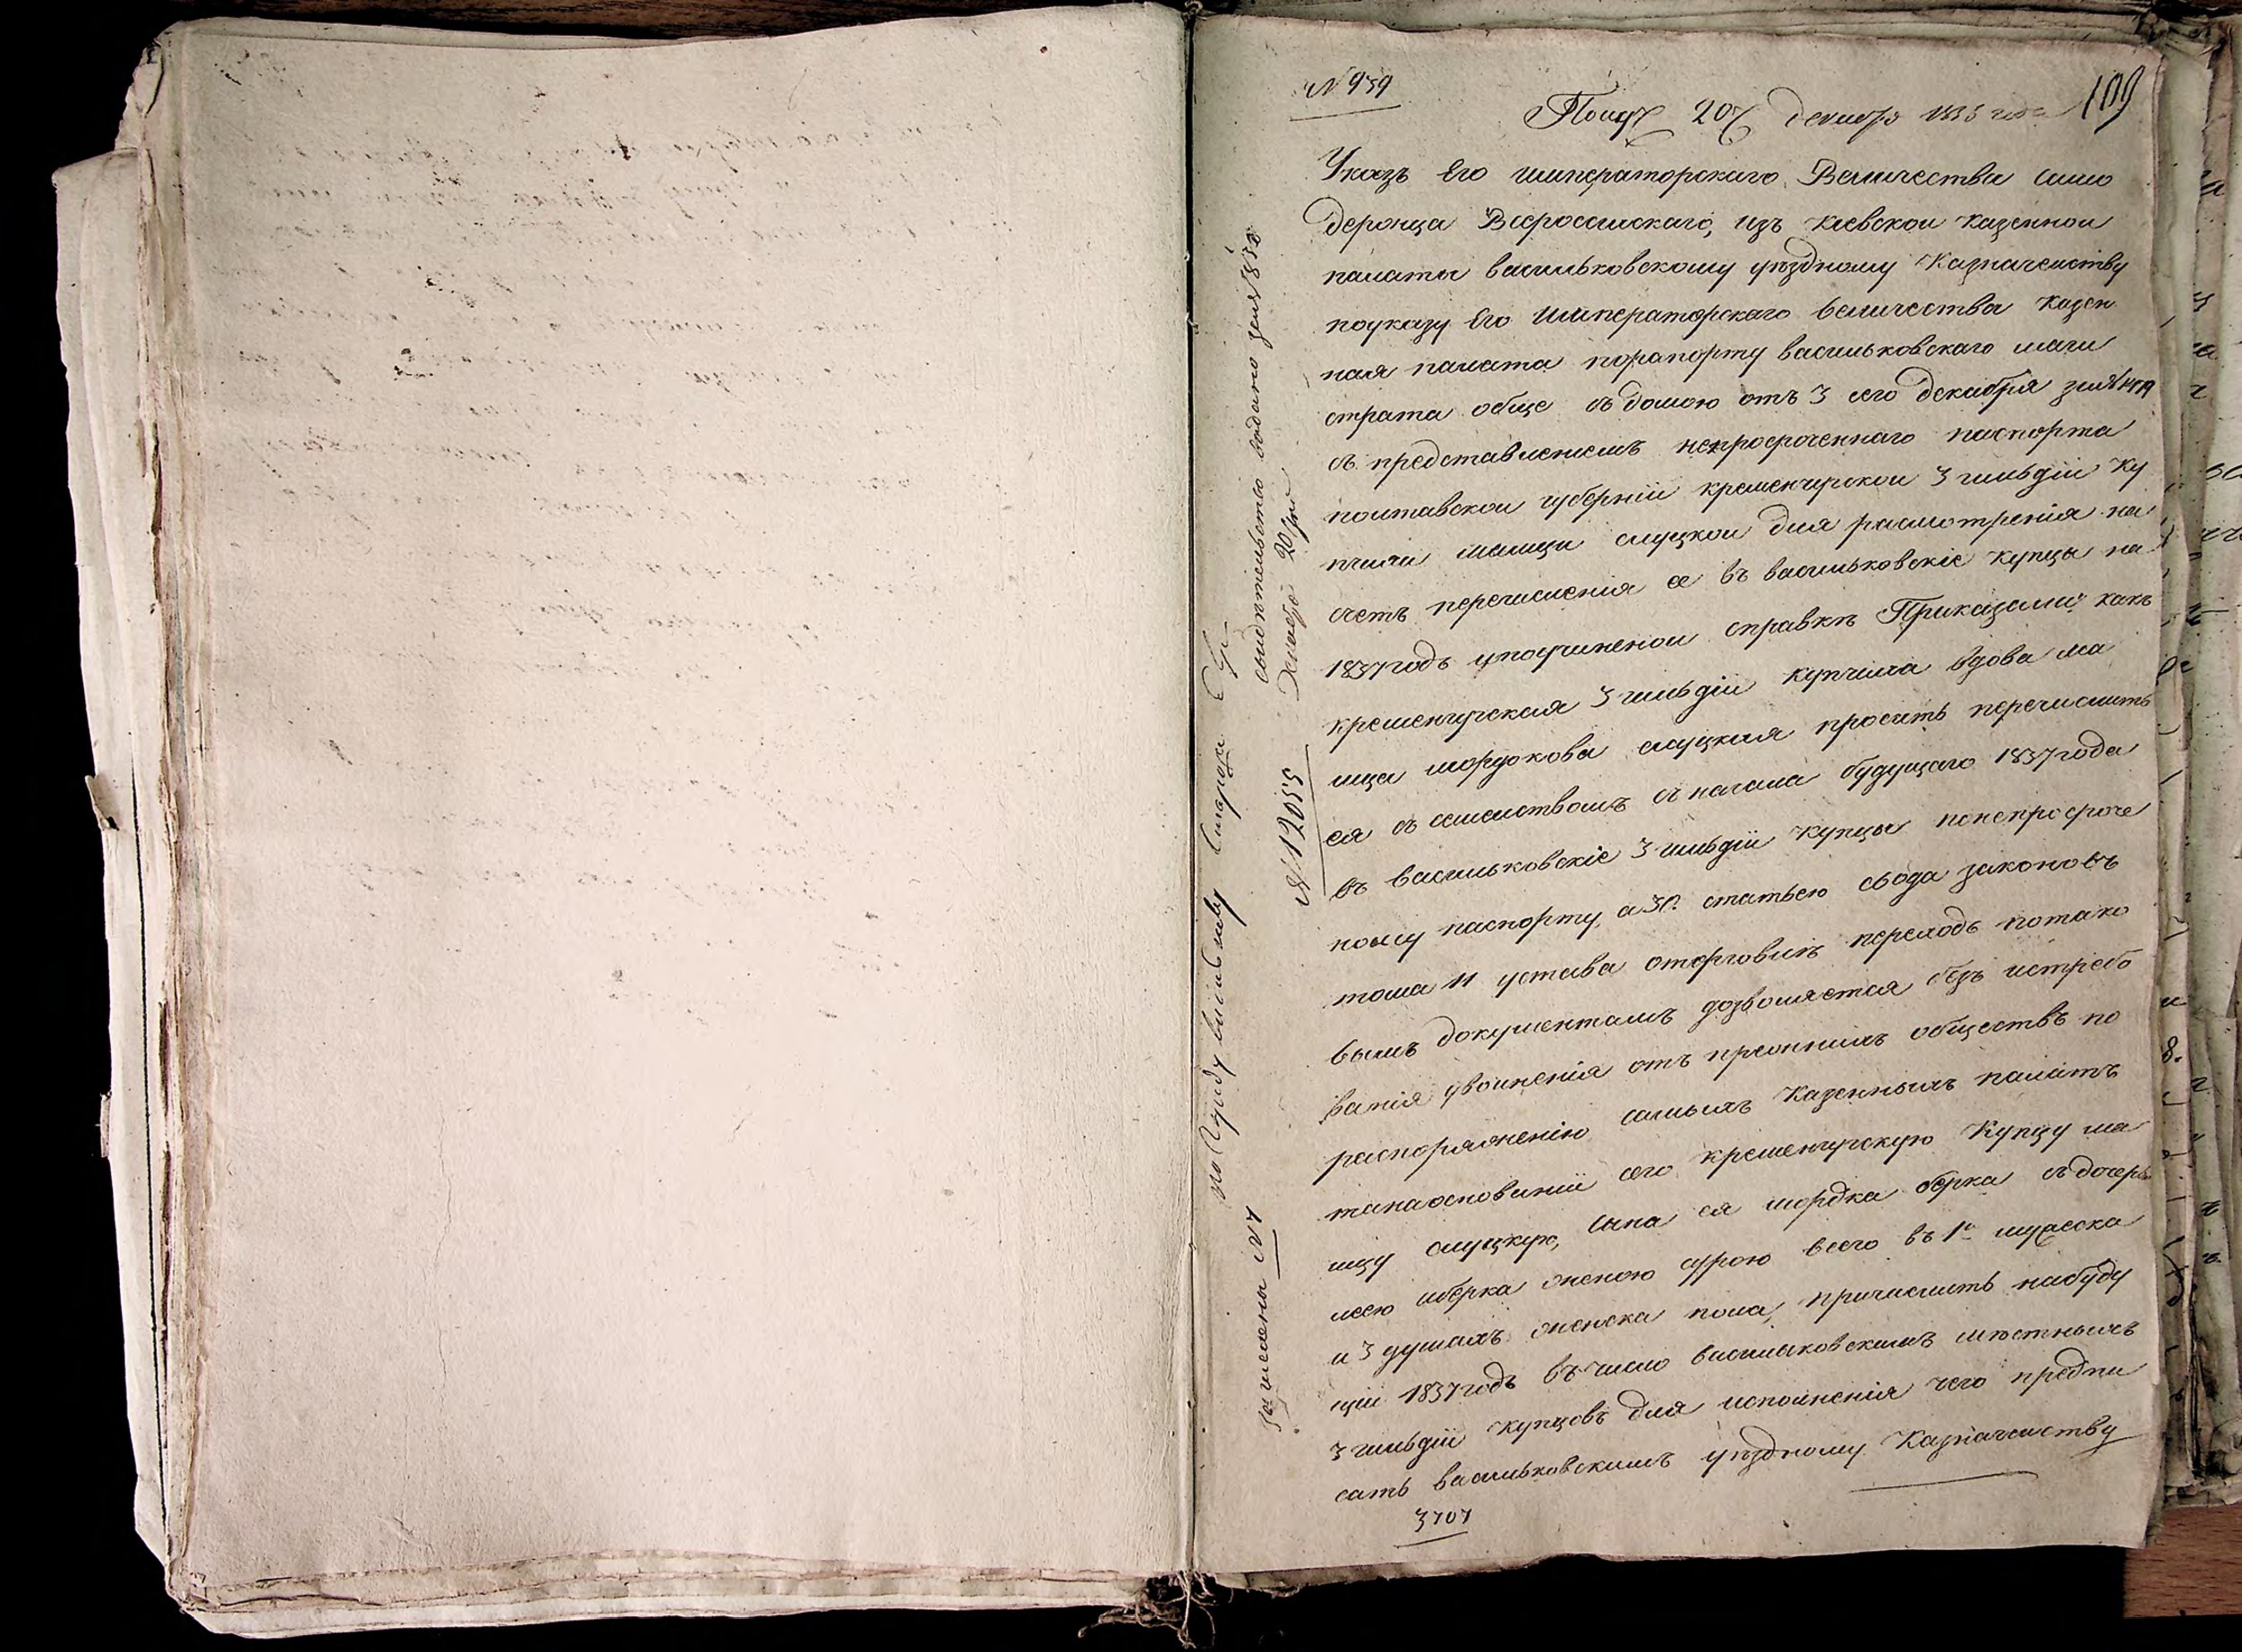 № 959
109
20 декабря 1836 года
Указъ Его императорскаго Величества само
держца Всеросийскаго, изъ киевской казенной
палаты васильковскому уѣздному Казначейству
поуказу Его Императорскаго величества казен
ная палата порапорту васильковскаго маги
страта обще съ домою отъ 3 сего декабря за №
съ представлениемъ непросроченнаго паспорта
полтавской губернии кременчугской 3 гильдии ку
пчихи малици слуцкой для расмотрения на
счетъ перечисления ея въ васильковские купцы на
1837 годъ упоучиненой справкѣ Приказали какъ
кременчугская 3 гильдии купчиха вдова ма
лица мордкова слуцкая проситъ перечислить
ея съ семействомъ съ начала будущаго 1837 года
въ васильковские 3 гильдии купцы понепросроче
ному паспорту, а 30. статьею свода законовъ
тома 11 устава оторговлѣ переходъ потако
вымъ документамъ дозволяется безъ истребо
вания увольнения отъ прежнихъ обществъ по
распоряжению самыхъ Казенныхъ палатъ
танаосновании сего кременчугскую Купчу ма
лицу слуцкую, сына ея мордка берка съ дочерь
иею иберка женою сурою всего въ 1й мужеска
и 3 душахъ женска пола, причислить набуду
щий 1837 годъ въ число васильковскихъ мѣстныхъ
3 гильдии купцовъ для исполнения чего предпи
сать васильковскимъ уѣздному Казначейству
3707
свидѣтельство выдано за № 850
Декабря 20 дня
№ 12055
по городу василькову
Зачислены № 7